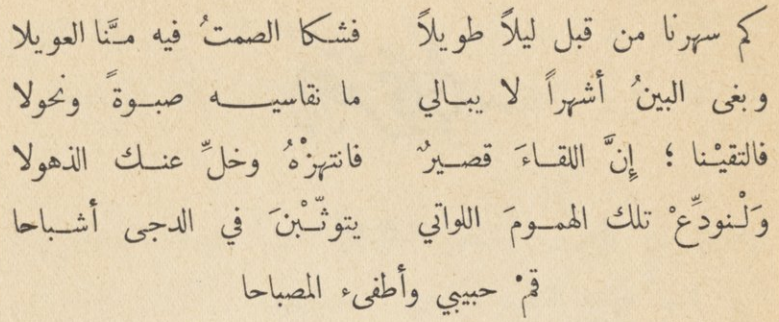 كم سهرنا من قبل ليلاً طويلاً فشكا الصمتُ فيه منَّا العويلا
وبغى البينُ أشهراً لا يبالي ما نقاسيه صبوةً ونحولا
فالتقيْنا ؛ إِنَّ اللقاءَ قصيرٌ فانتهزْهُ وخلِّ عنك الذهولا
وَلْنودِّعْ تلك الهمومَ اللواتي يتوثّبْنَ في الدجى أشباحا
قمْ حبيبي وأطفىء المصباحا